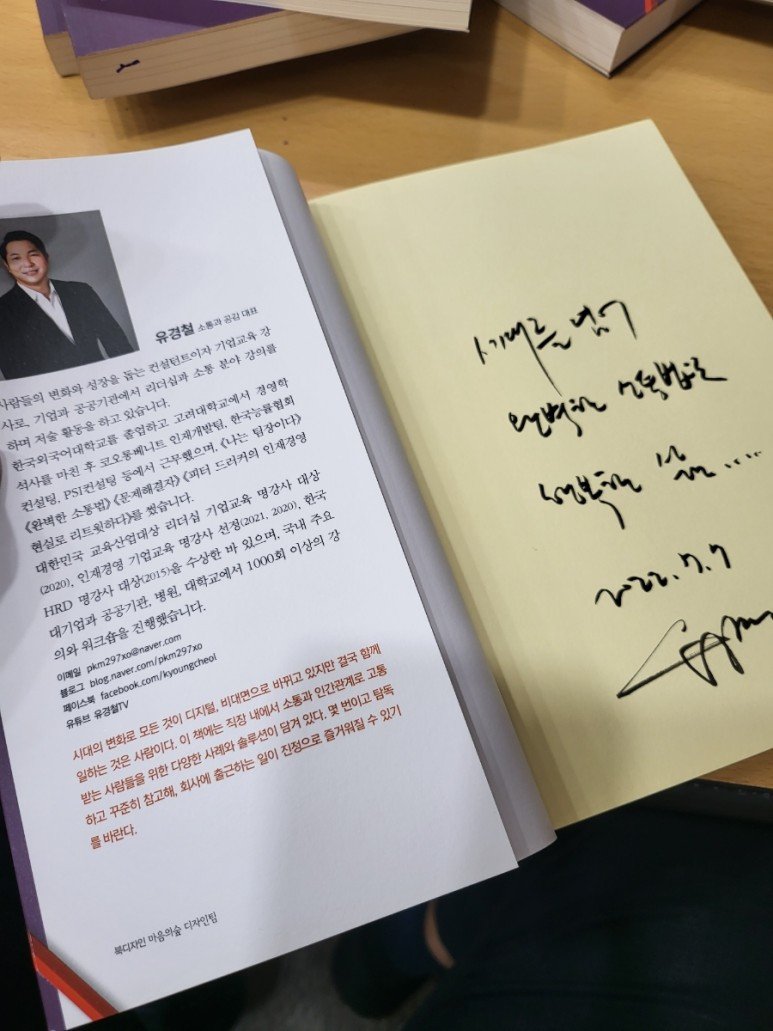 유경철 소통과 공감 대표
사람들의 변화와 성장을 돕는 컨설턴트이자 기업교육 강
사로, 기업과 공공기관에서 리더십과 소통 분야 강의를
하며 저술 활동을 하고 있습니다.
한국외국어대학교를 졸업하고 고려대학교에서 경영학
석사를 마친 후 코오롱베니트 인재개발팀, 한국능률협회
컨설팅, PSI컨설팅 등에서 근무했으며, 《나는 팀장이다》
《완벽한 소통법》 《문제해결자》 《피터 드러커의 인재경영
현실로 리트윗하다》를 썼습니다.
대한민국 교육산업대상 리더십 기업교육 명강사 대상
(2020), 인재경영 기업교육 명강사 선정(2021, 2020), 한국
HRD 명강사 대상(2015)을 수상한 바 있으며, 국내 주요
대기업과 공공기관, 병원, 대학교에서 1000회 이상의 강
의와 워크숍을 진행했습니다.
이메일 pkm297xo@naver.com
블로그 blog.naver.com/pkm297xo
페이스북 facebook.com/kyoungcheol
유튜브 유경철TV
시대의 변화로 모든 것이 디지털, 비대면으로 바뀌고 있지만 결국 함께
일하는 것은 사람이다. 이 책에는 직장 내에서 소통과 인간관계로 고통
받는 사람들을 위한 다양한 사례와 솔루션이 담겨 있다. 몇 번이고 탐독
하고 꾸준히 참고해, 회사에 출근하는 일이 진정으로 즐거워질 수 있기
를 바란다.
북디자인 마음의숲 디자인팀
세대를 넘어
완벽한 소통법으로
행복한 삶.....
2022.7.7